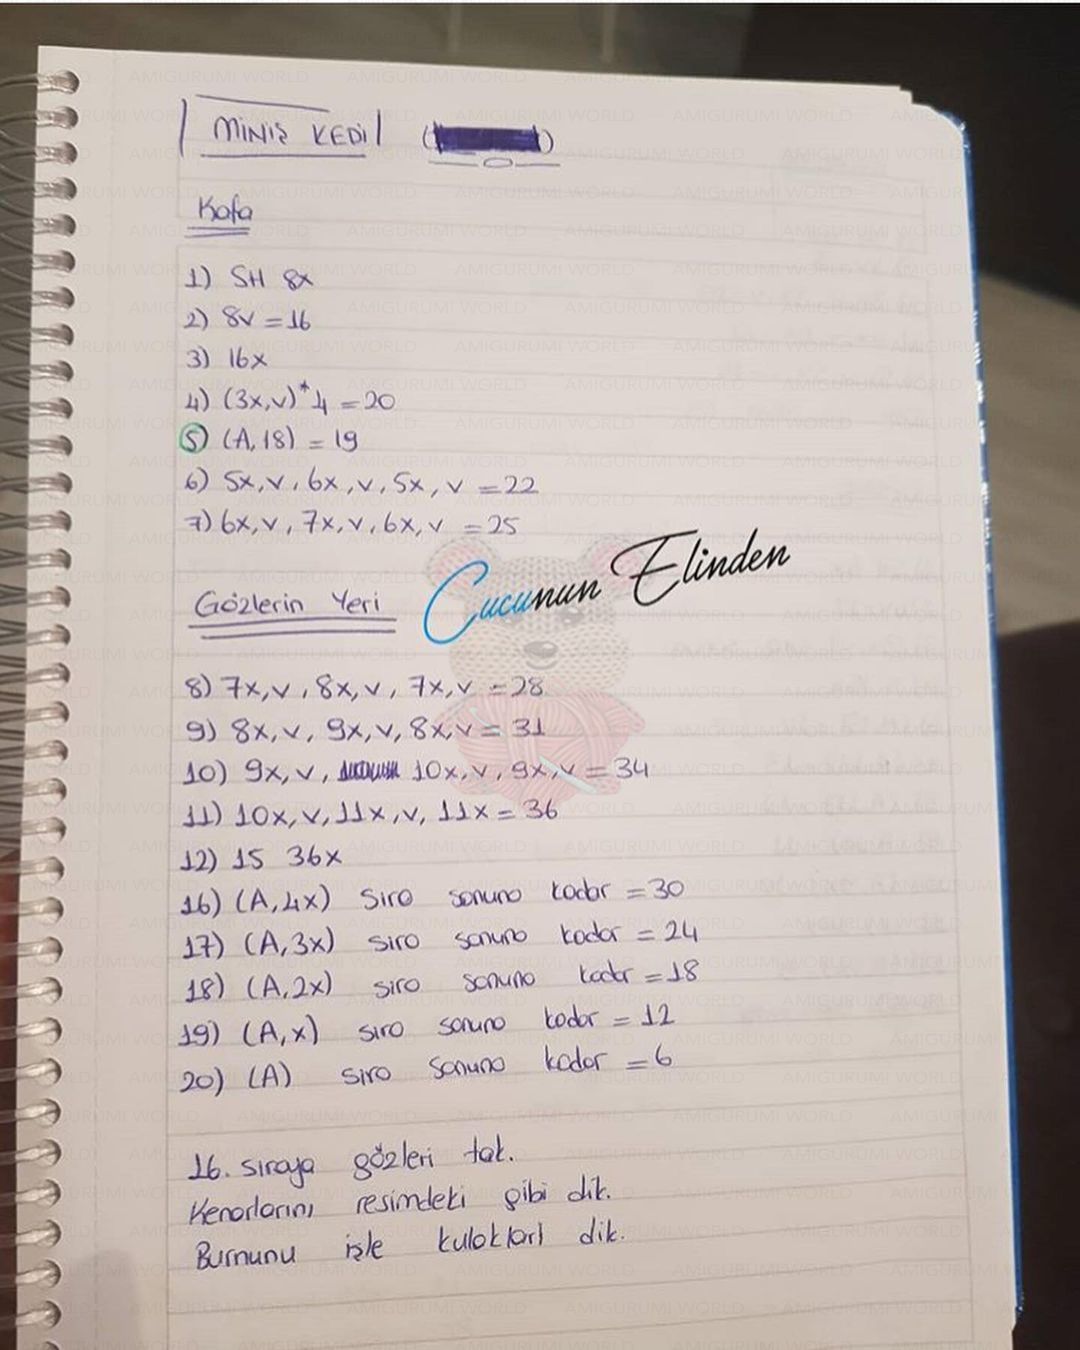 MİNİŞ KEDİ
Kafa
1) SH 8x
2) 8v = 16
3) 16x
4) (3x,v)*4 = 20
5) (A,18) = 19
6) 5x,v,6x,v,5x,v = 22
7) 6x,v,7x,v,6x,v = 25
Cucunun Elinden
Gözlerin Yeri
8) 7x,v,8x,v,7x,v = 28
9) 8x,v,9x,v,8x,v = 31
10) 9x,v, 10x,v,9x,v = 34
11) 10x,v,11x,v,11x = 36
12) 15 36x
16) (A,4x) sıra sonuna kadar = 30
17) (A,3x) sıra sonuna kadar = 24
18) (A,2x) sıra sonuna kadar = 18
19) (A,x) sıra sonuna kadar = 12
20) (A) sıra sonuna kadar = 6
16. sıraya gözleri tak.
Kenarlarını resimdeki gibi dik.
Burnunu işle kulakları dik.
AMIGURUMI WORLD